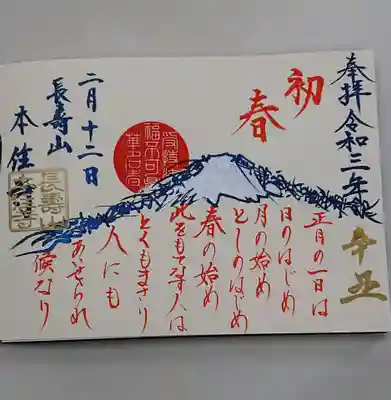 奉拝令和三年
辛丑
初春
正月の一日は
日のはじめ
月の始め
としのはじめ
春の始め
此をもてなす人は
とくもまさり
人にも
あいせられ
候なり
二月十二日
長寿山
本住寺